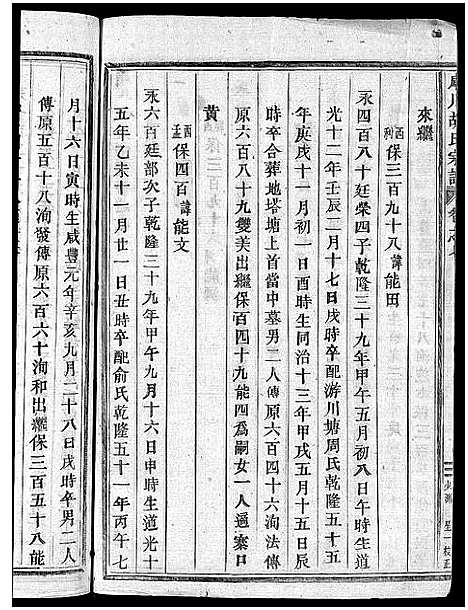 川胡氏宗譜
來繼
酉派保三百九十八諱能田
永四百八十廷榮四子乾隆三十九年甲午五月初八日午時生道
光十二年壬辰二月十七日戌時卒配游川塘周氏乾隆五十五
年庚戌十一月初一日酉時生同治十三年甲戌五月十五日辰
時卒合葬地塔塘上首當中墓男二人傳原六百四十六洵法傳
原六百八十九雙美出繼保百四十九能四為嗣女一人適寨口
黃
孟派保四百諱能文
永六百廷部次子乾隆三十九年甲午九月十六日申時生道光十
五年乙未十一月廿一日丑時卒配俞氏乾隆五十一年丙午七
月十六日寅時生咸豐元年辛亥九月二十八日戌時卒男二人
傳原五百十八洵發傳原六百六十洵和出繼保三百五十八能